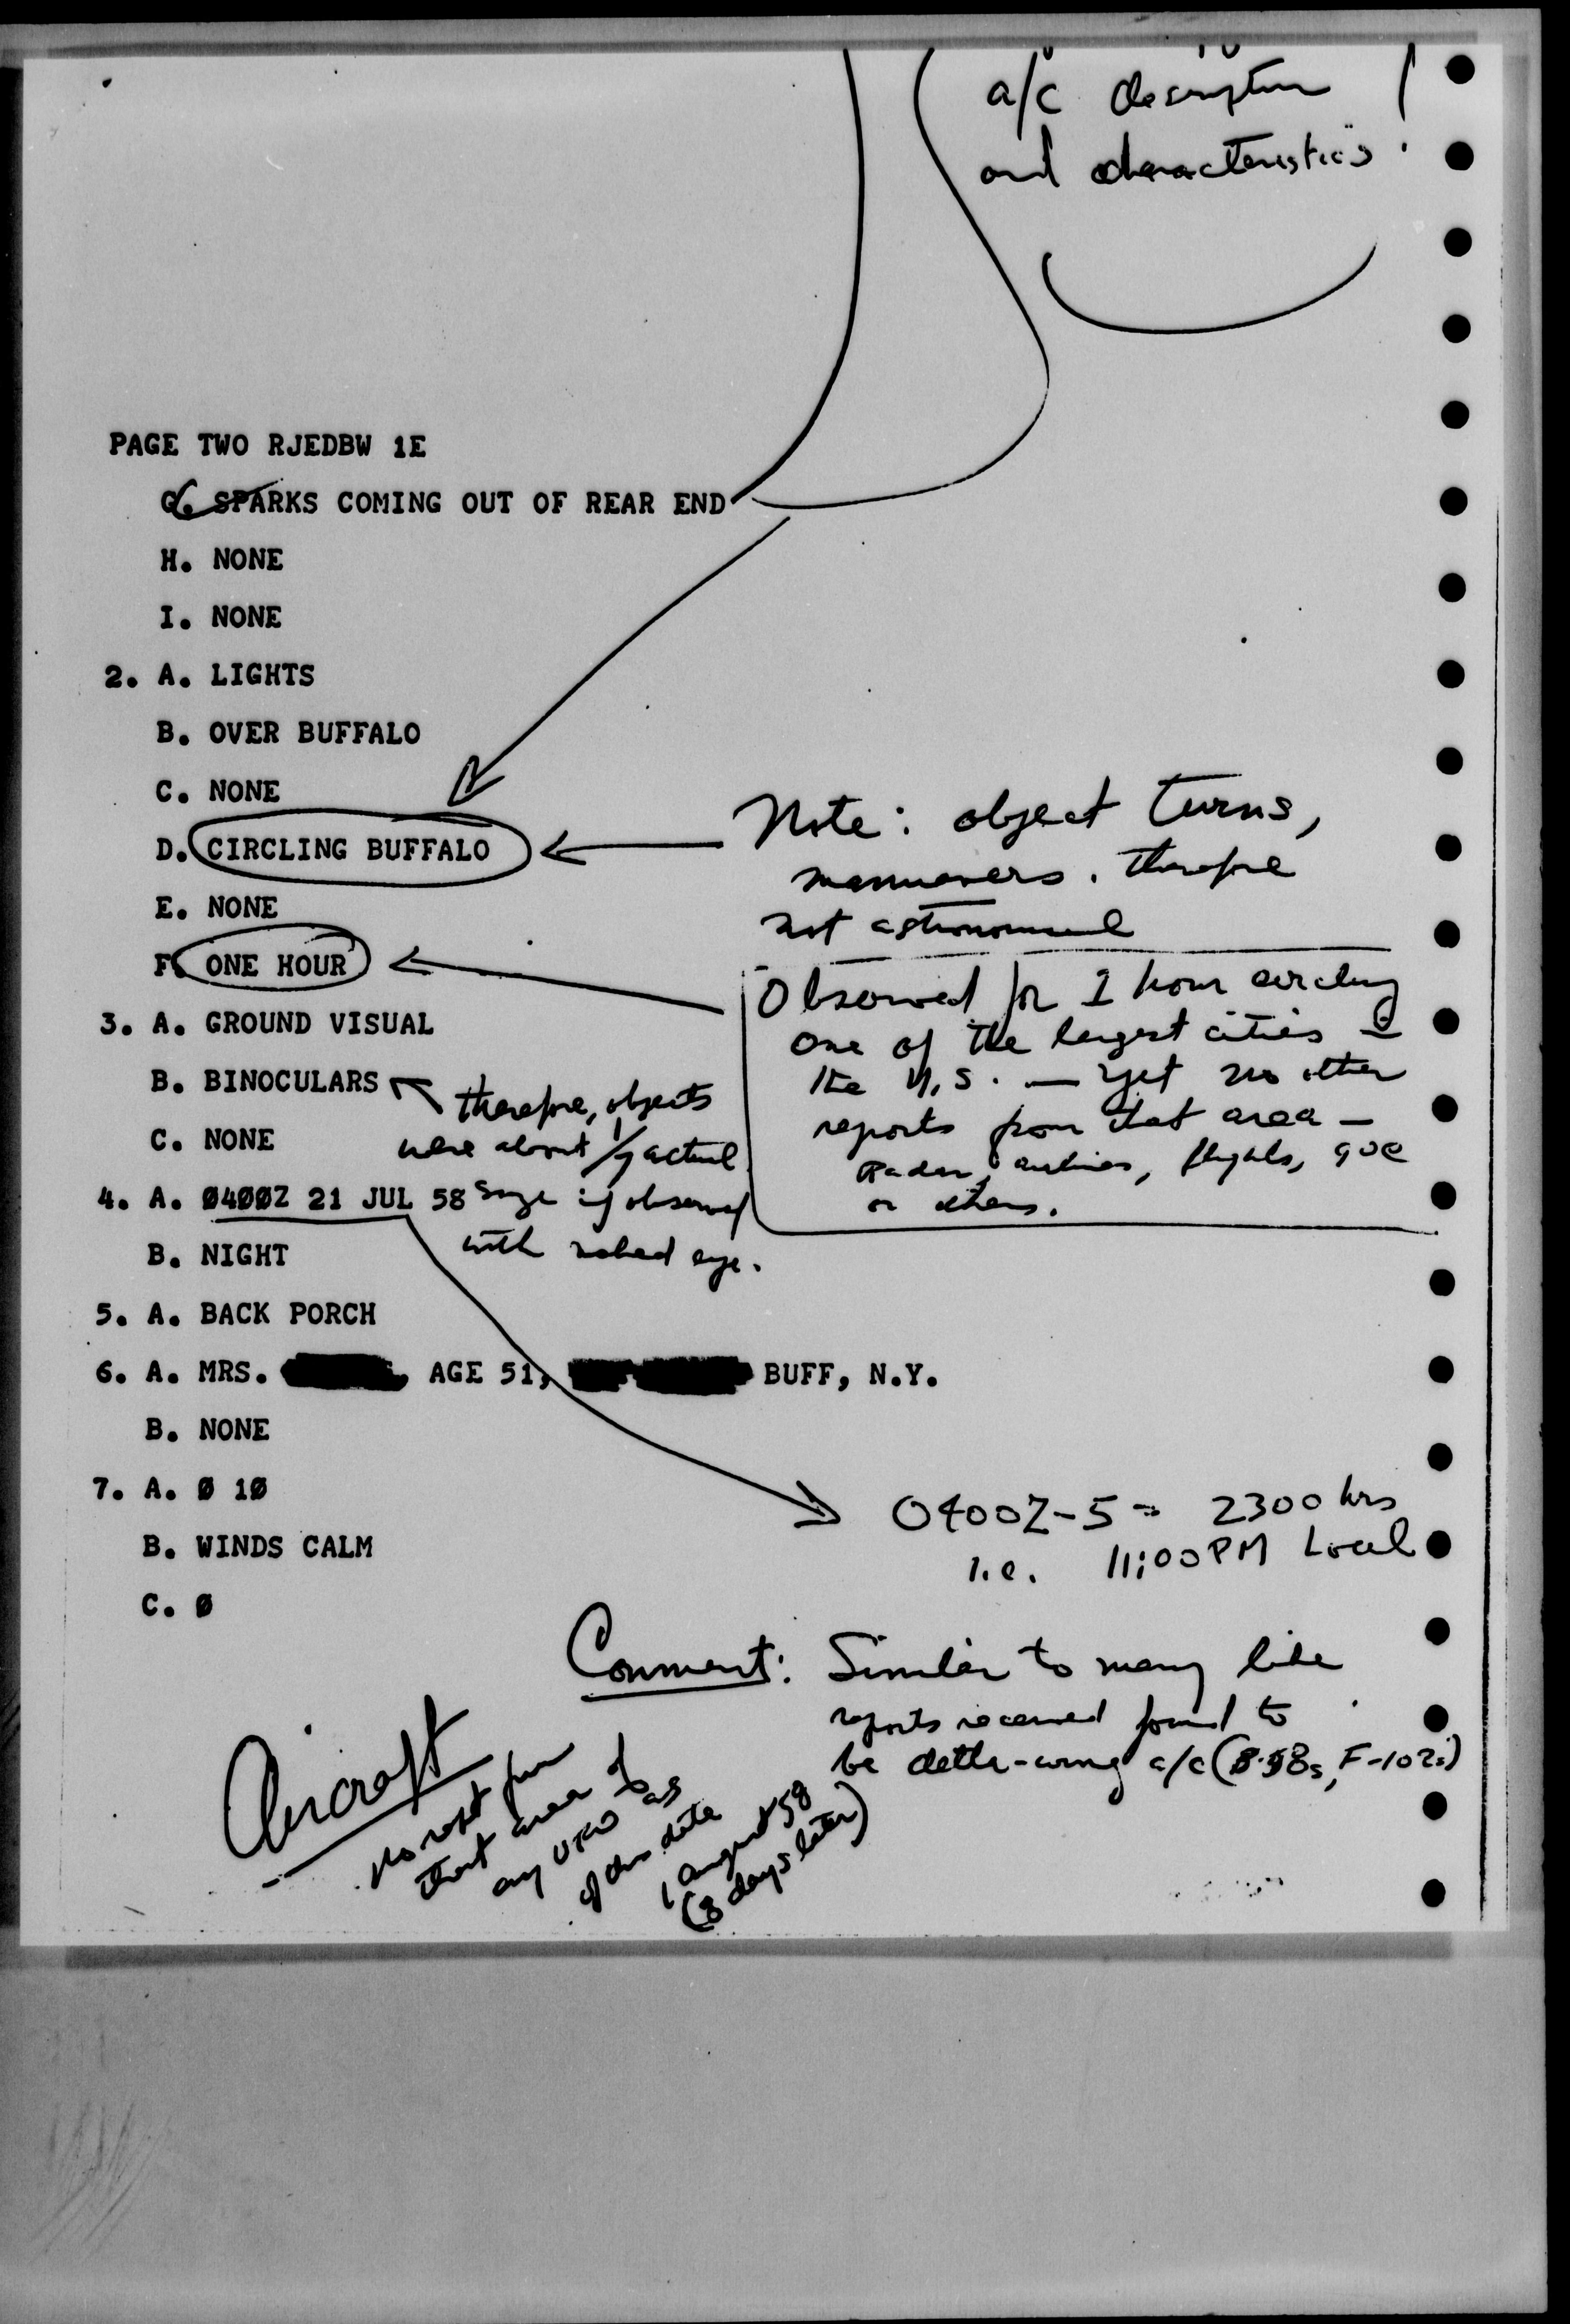 a/c description
and characteristics
PAGE TWO RJEDBW 1E
G. SPARKS COMING OUT OF REAR END
H. NONE
I. NONE
2. A. LIGHTS
B. OVER BUFFALO
C. NONE
D. CIRCLING BUFFALO
Note: object turns,
mannuevers. Therefore
not astronomical
E. NONE
F. ONE HOUR
Observed for 1 hour circling
one of the largest cities in
the U.S. — yet no other
reports from that area —
Radar, airlines, flights, GOC
or others.
3. A. GROUND VISUAL
B. BINOCULARS
therefore, objects
were about 1/7 actual
size if observed
with naked eye.
C. NONE
4. A. Ø4ØØZ 21 JUL 58
B. NIGHT
5. A. BACK PORCH
6. A. MRS. , AGE 51, BUFF, N.Y.
B. NONE
7. A. Ø 1Ø
0400Z-5= 2300 hrs
i.e. 11:00PM Local
B. WINDS CALM
C. Ø
Comment: Similar to many like
reports received found to
be delta-wing a/c (B-58s, F-102s)
Aircraft
No report from
that area of
any UFO as
of this date
1 August 58
(8 days later)